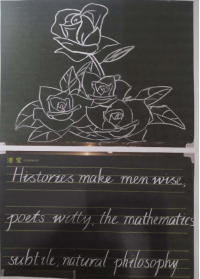 Histories make men wise,
poets witty, the mathematics
subtile, natural philosophy